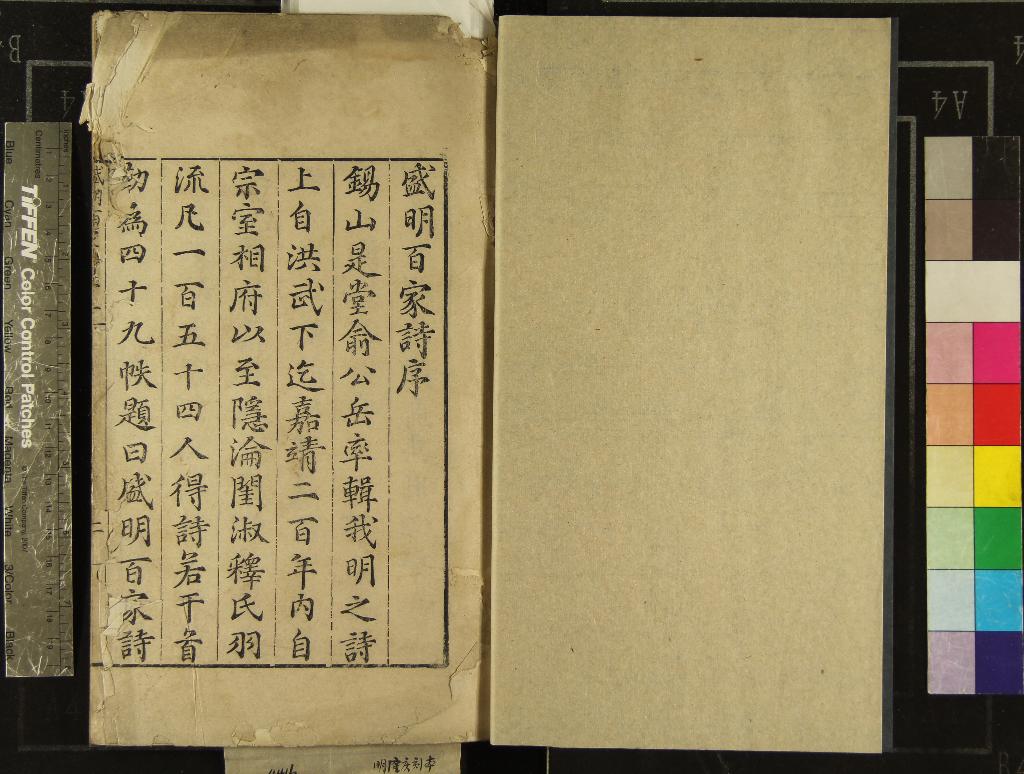 盛明百家詩序
錫山是堂俞公岳率輯我明之詩
上自洪武下迄嘉靖二百年內自
宗室相府以至隱淪閨淑釋氏羽
流凡一百五十四人得詩若干首
為四十九帙題曰盛明百家詩
TIFFEN Color Control Patches
Centimetres
Inches
Blue
Cyan
Green
Yellow
Red
Magenta
White
3/Color
Black
A4
B